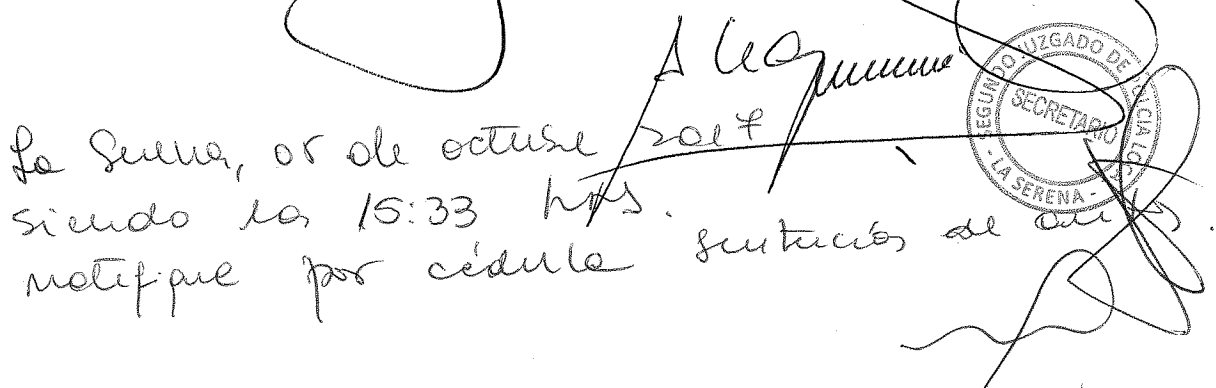 SEGUNDO JUZGADO DE POLICIA LOCAL
SECRETARIO
- LA SERENA -
La Serena, 05 de octubre 2017
siendo las 15:33 hrs.
notifiqué por cédula sentencia de autos.